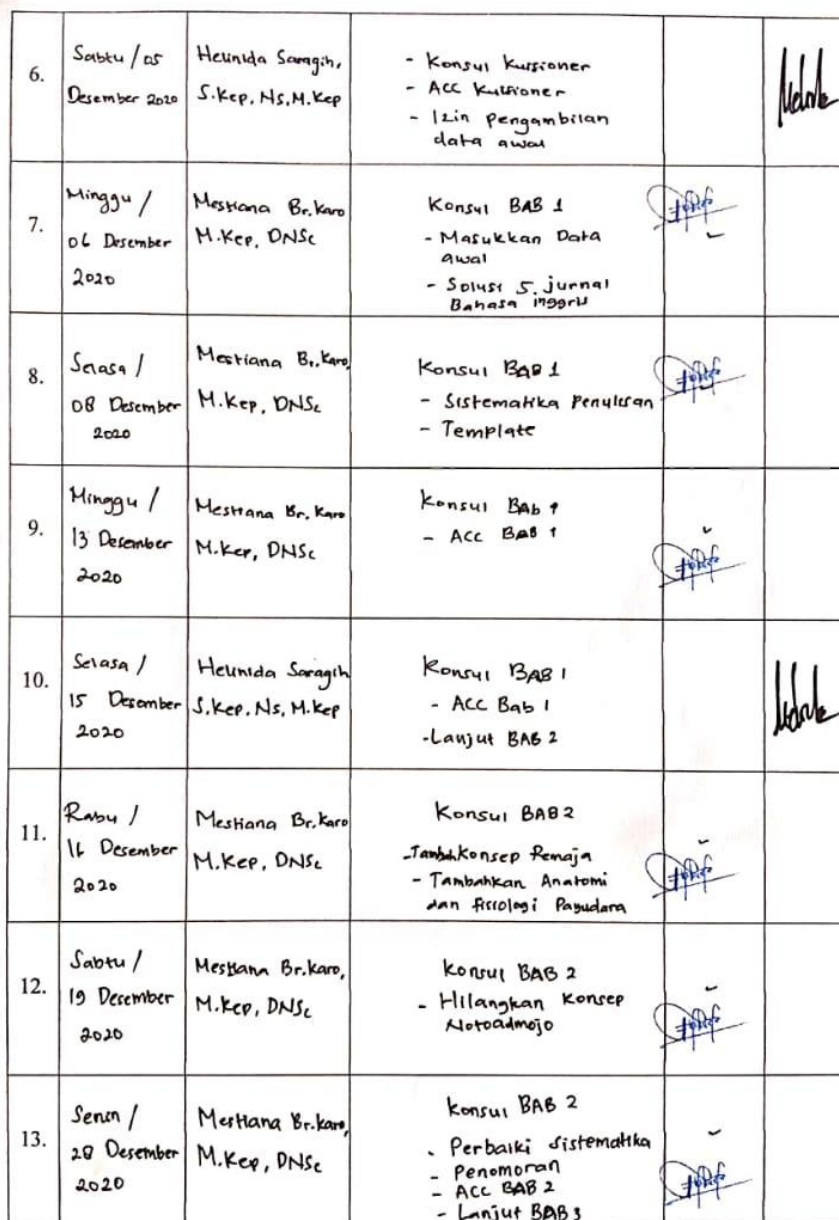 6.
Sabtu / 05
Desember 2020
Helinida Saragih,
S.Kep, Ns, M.Kep
- Konsul Kuisioner
- ACC Kuisioner
- Izin pengambilan
data awal
7.
Minggu /
06 Desember
2020
Mestiana Br. Karo
M.Kep, DNSc
Konsul BAB 1
- Masukkan Data
awal
- Solusi 5. jurnal
Bahasa inggris
8.
Selasa /
08 Desember
2020
Mestiana Br. Karo,
M.Kep, DNSc
Konsul BAB 1
- Sistematika Penulisan
- Template
9.
Minggu /
13 Desember
2020
Mestiana Br. Karo
M.Kep, DNSc
Konsul BAb 1
- ACC BAB 1
10.
Selasa /
15 Desember
2020
Helinida Saragih
S.Kep. Ns, M.Kep
Konsul BAB 1
- ACC Bab 1
- Lanjut BAB 2
11.
Rabu /
16 Desember
2020
Mestiana Br. Karo
M.Kep, DNSc
Konsul BAB 2
- Tambah Konsep Remaja
- Tambahkan Anatomi
dan fisiologi Payudara
12.
Sabtu /
19 Desember
2020
Mestiana Br. Karo,
M.Kep, DNSc
Konsul BAB 2
- Hilangkan Konsep
Notoadmojo
13.
Senin /
28 Desember
2020
Mestiana Br. Karo,
M.Kep, DNSc
Konsul BAB 2
- Perbaiki sistematika
- Penomoran
- ACC BAB 2
- Lanjut BAB 3